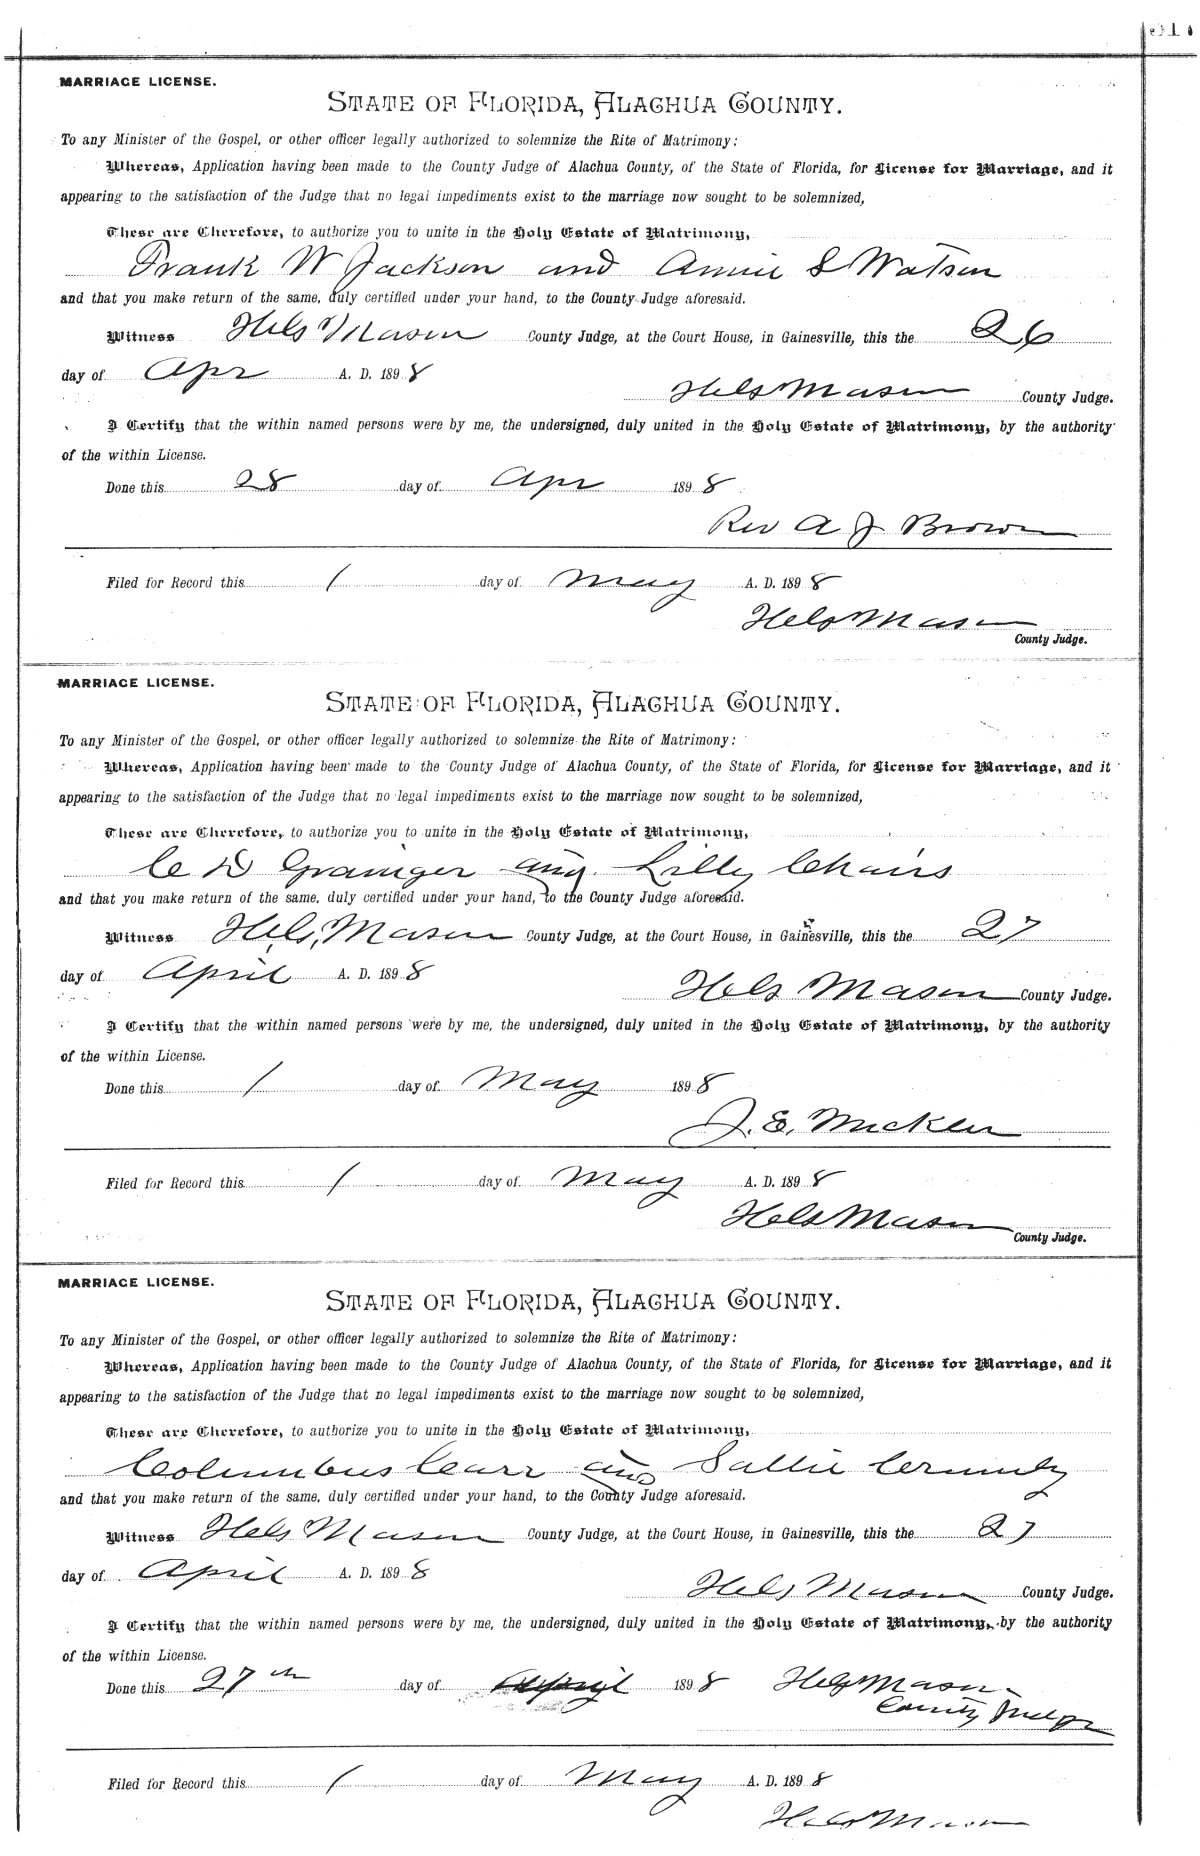 MARRIAGE LICENSE.
STATE OF FLORIDA, ALACHUA COUNTY.
To any Minister of the Gospel, or other officer legally authorized to solemnize the Rite of Matrimony:
Whereas, Application having been made to the County Judge of Alachua County, of the State of Florida, for License for Marriage, and it
appearing to the satisfaction of the Judge that no legal impediments exist to the marriage now sought to be solemnized,
These are Therefore, to authorize you to unite in the Holy Estate of Matrimony,
Frank W Jackson and Annie S Watson
and that you make return of the same, duly certified under your hand, to the County Judge aforesaid.
Witness Mason County Judge, at the Court House, in Gainesville, this the 26
day of Apr A. D. 1898
Mason County Judge.
I Certify that the within named persons were by me, the undersigned, duly united in the Holy Estate of Matrimony, by the authority
of the within License.
Done this 28 day of Apr 1898
Rev A J Brown
Filed for Record this 1 day of May A. D. 1898
Mason
County Judge.
MARRIAGE LICENSE.
STATE OF FLORIDA, ALACHUA COUNTY.
To any Minister of the Gospel, or other officer legally authorized to solemnize the Rite of Matrimony:
Whereas, Application having been made to the County Judge of Alachua County, of the State of Florida, for License for Marriage, and it
appearing to the satisfaction of the Judge that no legal impediments exist to the marriage now sought to be solemnized,
These are Therefore, to authorize you to unite in the Holy Estate of Matrimony,
C D Grainger and Lilly Chairs
and that you make return of the same, duly certified under your hand, to the County Judge aforesaid.
Witness Mason County Judge, at the Court House, in Gainesville, this the 27
day of April A. D. 1898
Mason County Judge.
I Certify that the within named persons were by me, the undersigned, duly united in the Holy Estate of Matrimony, by the authority
of the within License.
Done this 1 day of May 1898
J. E. Mickler
Filed for Record this 1 day of May A. D. 1898
Mason
County Judge.
MARRIAGE LICENSE.
STATE OF FLORIDA, ALACHUA COUNTY.
To any Minister of the Gospel, or other officer legally authorized to solemnize the Rite of Matrimony:
Whereas, Application having been made to the County Judge of Alachua County, of the State of Florida, for License for Marriage, and it
appearing to the satisfaction of the Judge that no legal impediments exist to the marriage now sought to be solemnized,
These are Therefore, to authorize you to unite in the Holy Estate of Matrimony,
Columbus Carr and Sallie
and that you make return of the same, duly certified under your hand, to the County Judge aforesaid.
Witness Mason County Judge, at the Court House, in Gainesville, this the 27
day of April A. D. 1898
Mason County Judge.
I Certify that the within named persons were by me, the undersigned, duly united in the Holy Estate of Matrimony, by the authority
of the within License.
Done this 27th day of April 1898 Mason
County Judge
Filed for Record this 1 day of May A. D. 1898
Mason